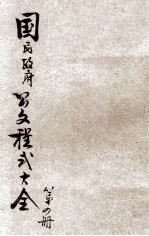 国民政府公文程式大全
第四册